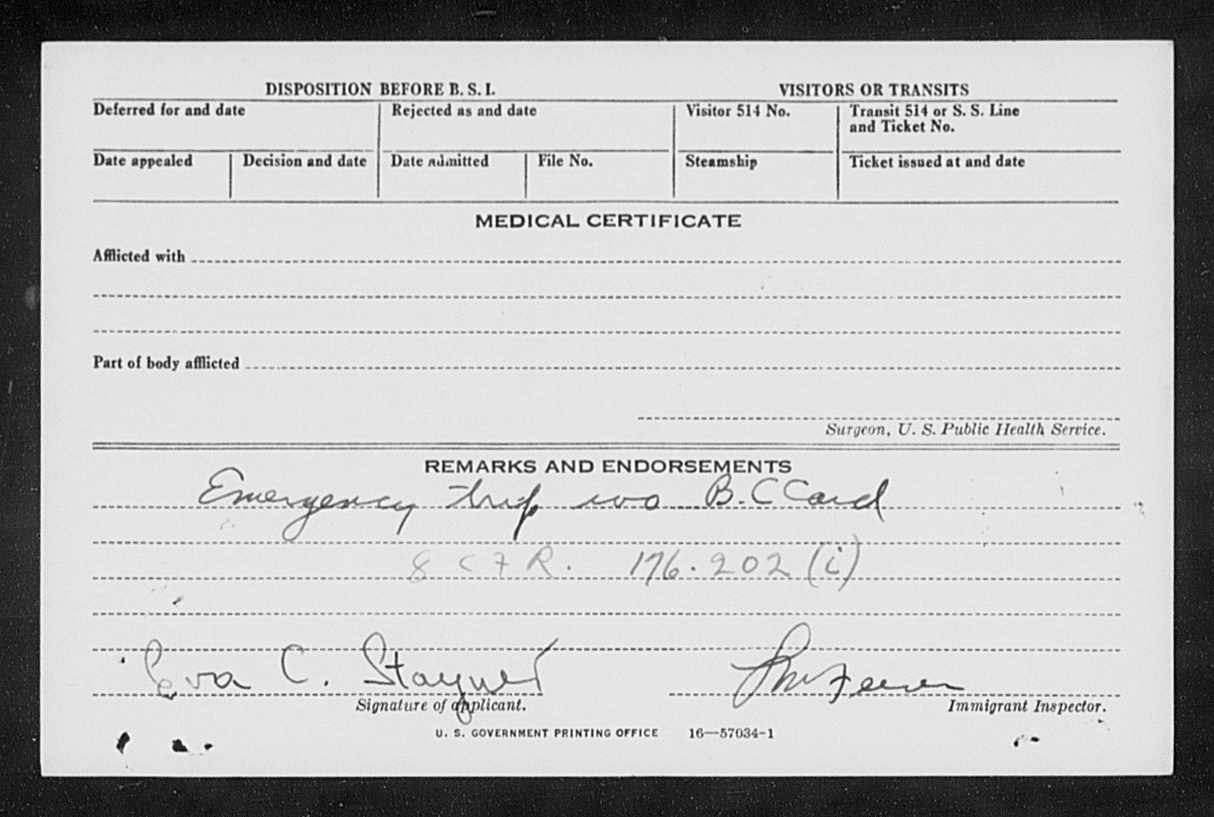 DISPOSITION BEFORE B. S. I.
VISITORS OR TRANSITS
Deferred for and date
Rejected as and date
Visitor 514 No.
Transit 514 or S. S. Line
and Ticket No.
Date appealed
Decision and date
Date admitted
File No.
Steamship
Ticket issued at and date
MEDICAL CERTIFICATE
Afflicted with
Part of body afflicted
Surgeon, U. S. Public Health Service.
REMARKS AND ENDORSEMENTS
Emergency trip wo B.C Card
8 CFR. 176.202 (i)
Eva C. Stayner
Signature of applicant.
Immigrant Inspector.
U. S. GOVERNMENT PRINTING OFFICE 16—57034-1